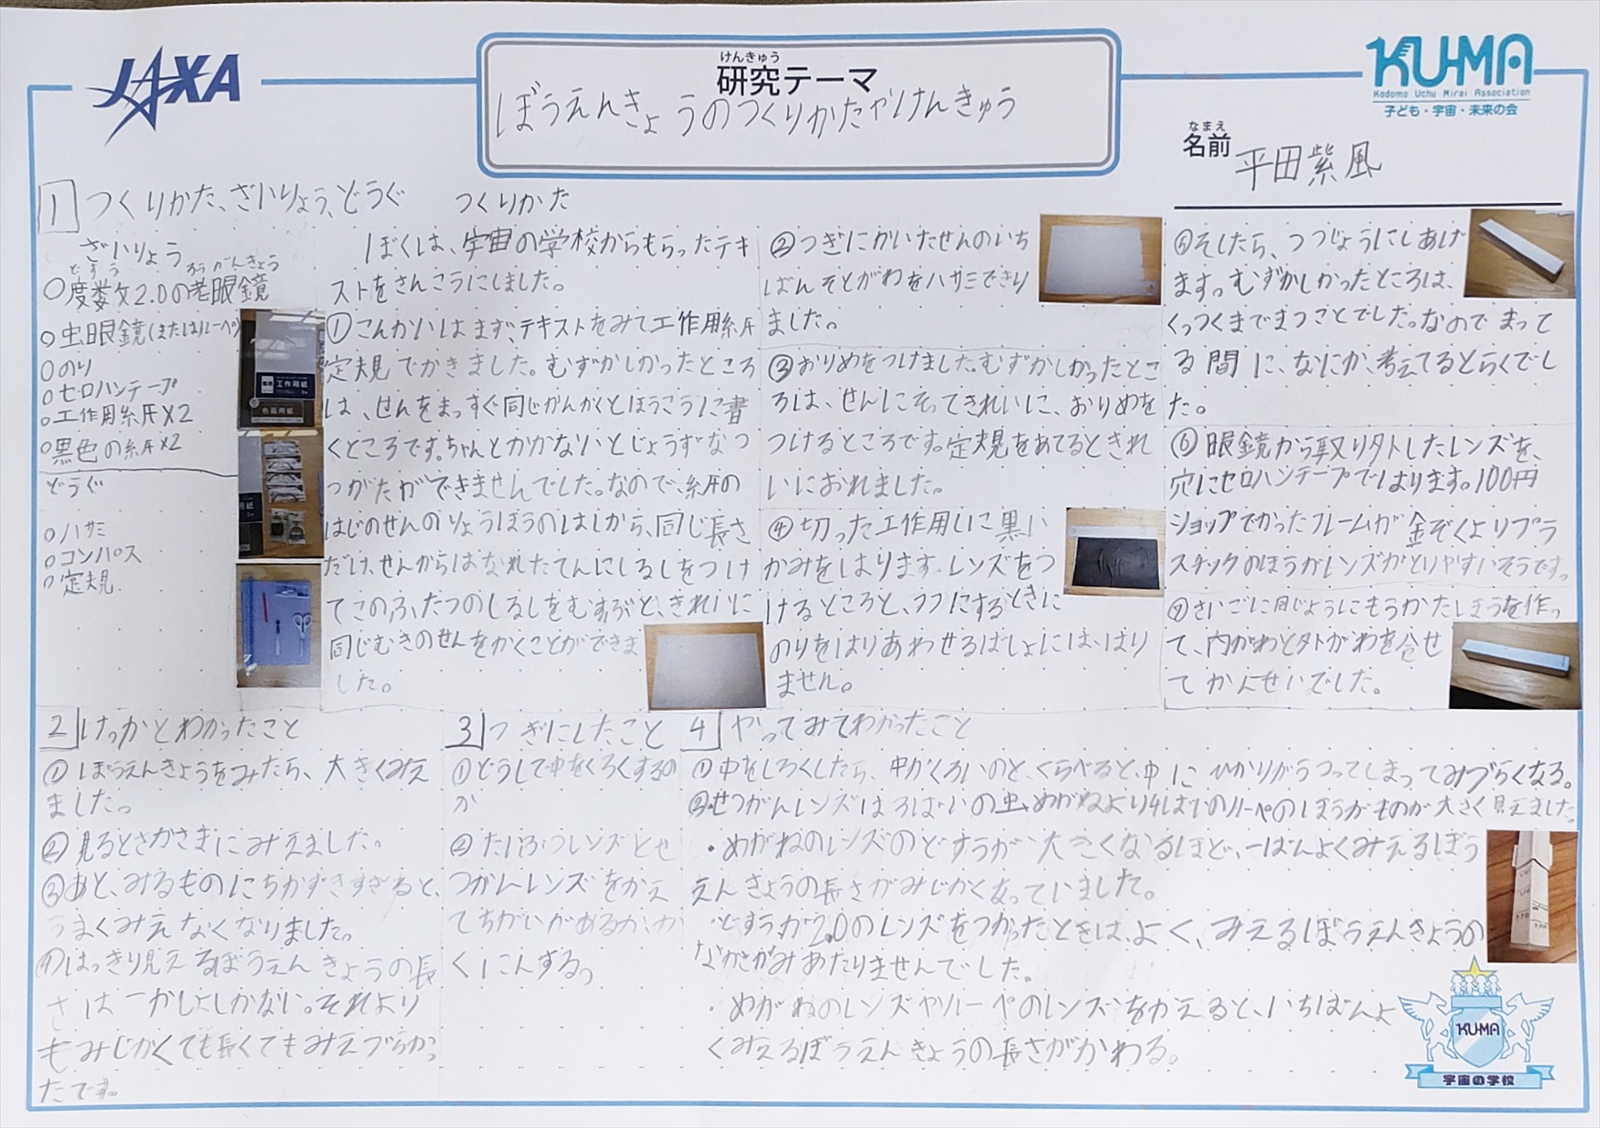 JAXA
けんきゅう
研究テーマ
ぼうえんきょうのつくりかたやけんきゅう
KU-MA
Kodomo Uchu Mirai Association
子ども・宇宙・未来の会
なまえ
名前
平田紫風
1 つくりかた、ざいりょう、どうぐ
ざいりょう
どすう ろうがんきょう
○度数2.0の老眼鏡
○虫眼鏡(またはルーペ)
○のり
○セロハンテープ
○工作用紙×2
○黒色の紙×2
どうぐ
○ハサミ
○コンパス
○定規
つくりかた
ぼくは、宇宙の学校からもらったテキ
ストをさんこうにしました。
①こんかいはまず、テキストをみて工作用紙
定規でかきました。むずかしかったところ
は、せんをまっすぐ同じかんかくとほうこうに書
くところです。ちゃんとかかないとじょうずなつ
つがたができませんでした。なので、紙の
はじのせんのりょうほうのはしから、同じ長さ
だけ、せんからはなれたてんにしるしをつけ
てこのふたつのしるしをむすぶと、きれいに
同じむきのせんをかくことができま
した。
②つぎにかいたせんのいち
ばんそとがわをハサミできり
ました。
③おりめをつけました。むずかしかったとこ
ろは、せんにそってきれいに、おりめを
つけるところです。定規をあてるときれ
いにおれました。
④切った工作用しに黒い
かみをはります。レンズをつ
けるところと、つつにするときに
のりをはりあわせるばしょには、はり
ません。
⑤そしたら、つつじょうにしあげ
ます。むずかしかったところは、
くっつくまでまつことでした。なのでまって
る間に、なにか、考えてるとらくでし
た。
⑥眼鏡から取り外したレンズを、
穴にセロハンテープではります。100円
ショップでかったフレームが金ぞくよりプラ
スチックのほうがレンズがとりやすいそうです。
⑦さいごに同じようにもうかたほうを作っ
て、内がわと外がわを合せ
てかんせいでした。
2 けっかとわかったこと
①ぼうえんきょうをみたら、大きくみえ
ました。
②見るとさかさまにみえました。
③あと、みるものにちかずきすぎると、
うまくみえなくなりました。
④はっきり見えるぼうえんきょうの長
さは一かしょしかない。それより
もみじかくても長くてもみえづらかっ
たです。
3 つぎにしたこと
①どうして中をくろくするの
か
②たいぶつレンズとせ
つがんレンズをかえ
てちがいがあるか、か
くにんする。
4 やってみてわかったこと
①中をしろくしたら、中がくろいのと、くらべると、中にひかりがうつってしまってみづらくなる。
②・せつがんレンズは3ばいの虫めがねより4ばいのルーペのほうがものが大きく見えました。
・めがねのレンズのどすうが大きくなるほど、一ばんよくみえるぼう
えんきょうの長さがみじかくなっていました。
・どすうが2.0のレンズをつかったときは、よく、みえるぼうえんきょうの
ながさがみあたりませんでした。
・めがねのレンズやルーペのレンズをかえると、いちばんよ
くみえるぼうえんきょうの長さがかわる。
KU-MA
宇宙の学校